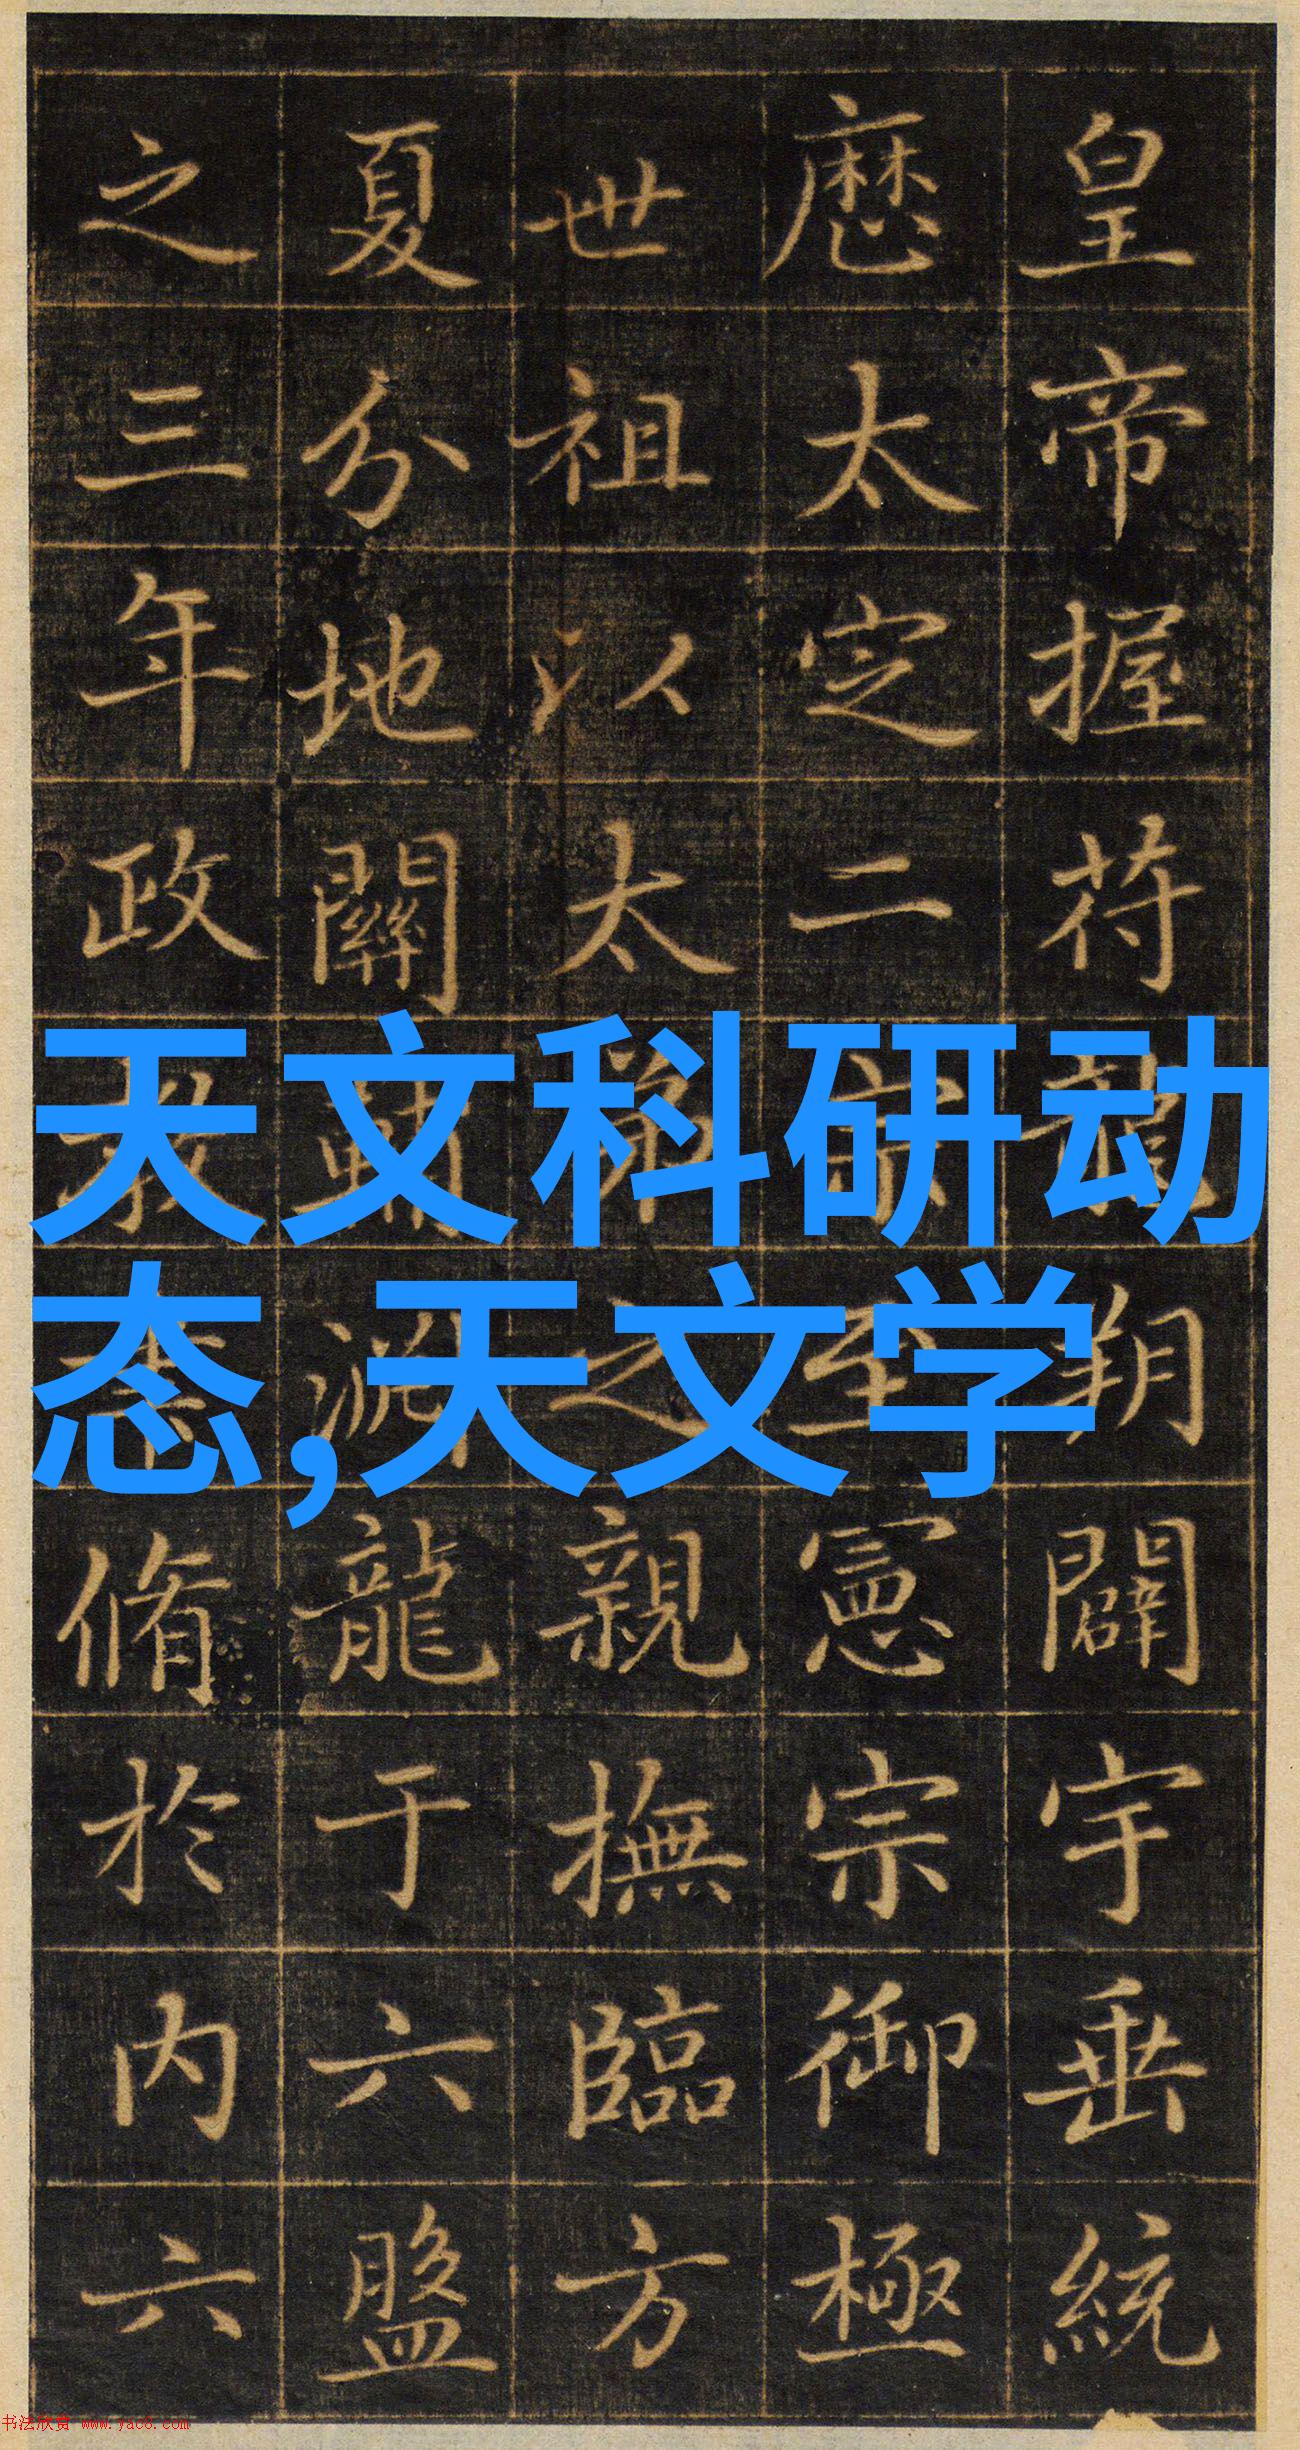 皇帝握符龍朔闢宇垂統
歷太定二宗至憲宗御極
世祖以太弟之親撫臨方
夏分地關輔淵龍于六盤
之三年政教聿脩於内六
天文科研动
态,天文学
书法欣赏 www.yac8.com